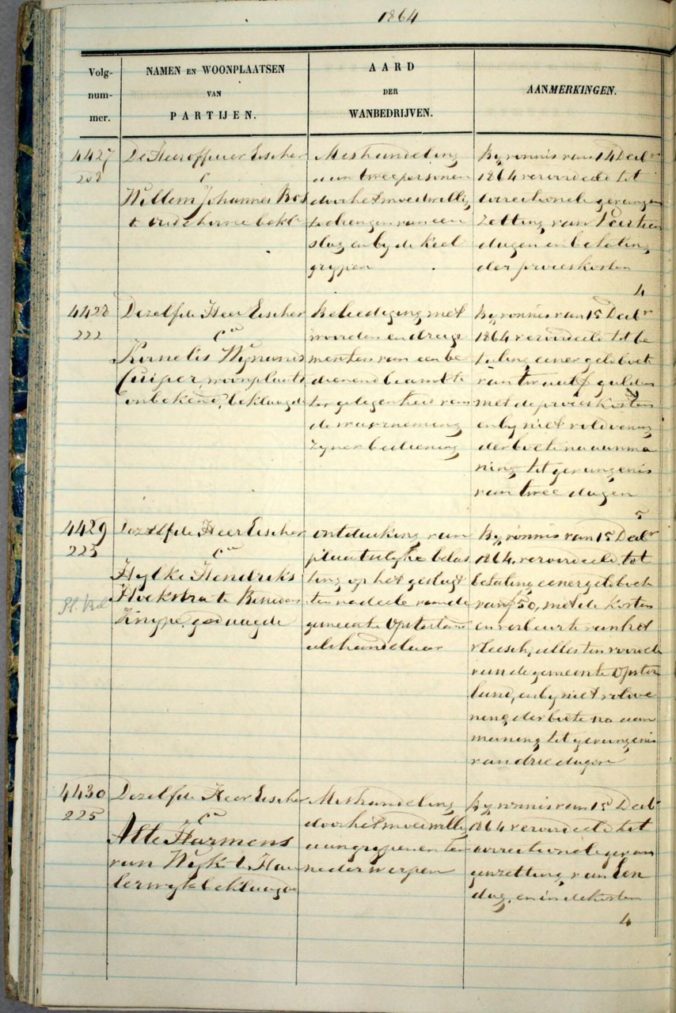 1864
Volg-
num-
mer.
NAMEN EN WOONPLAATSEN
VAN
PARTIJEN.
AARD
DER
WANBEDRIJVEN.
AANMERKINGEN.
4427
De Heer officier Eischer
Willem Johannes Bos
Mishandeling
aan twee personen
door het moedwillig
toebrengen van een
slag en by de keel
grypen
By vonnis van 14 Decbr
1864 veroordeeld tot
correctionele gevangen
zetting van Veertien
dagen en betaling
der proceskosten
4
4428
222
Dezelfde Heer Eischer
Ca
Kornelis Wynands
Cuiper, woonplaats
onbekend, beklaagde
Beleediging met
woorden en dreig
menten van een be
dienend beambte
ter gelegenheid van
de waarneming
zyner bediening
By vonnis van 15 Decbr
1864 veroordeeld tot be
taling eener geldboete
van twaalf gulden
met de proceskosten
en by niet voldoening
der boete na aanma
ning tot gevangenis
van twee dagen
5
4429
225
Dezelfde Heer Eischer
Ca
Hylke Hendriks
Hoekstra te Beneden
Knype, gedaagde
ontduiking van
plaatselyke belas
ting op het geslagt
ten nadeele van de
gemeente Opsterland
als handelaar
By vonnis van 15 Decbr
1864, veroordeeld tot
betaling eener geldboete
van f 50, met de kosten
en verbeurte van het
vleesch, alles ten voordeele
van de gemeente Opster
land, en by niet voldoe
ning der boete na aan
maning tot gevangenis
van drie dagen
4430
225
Dezelfde Heer Eischer
Ca
Atte Harmens
van Wyk te Hau
lerwyk beklaagde
Mishandeling
door het moedwillig
aangrypen en ter
nederwerpen
By vonnis van 15 Decbr
1864 veroordeeld tot
correctionele gevan
genzetting van Een
dag, en in de kosten
4